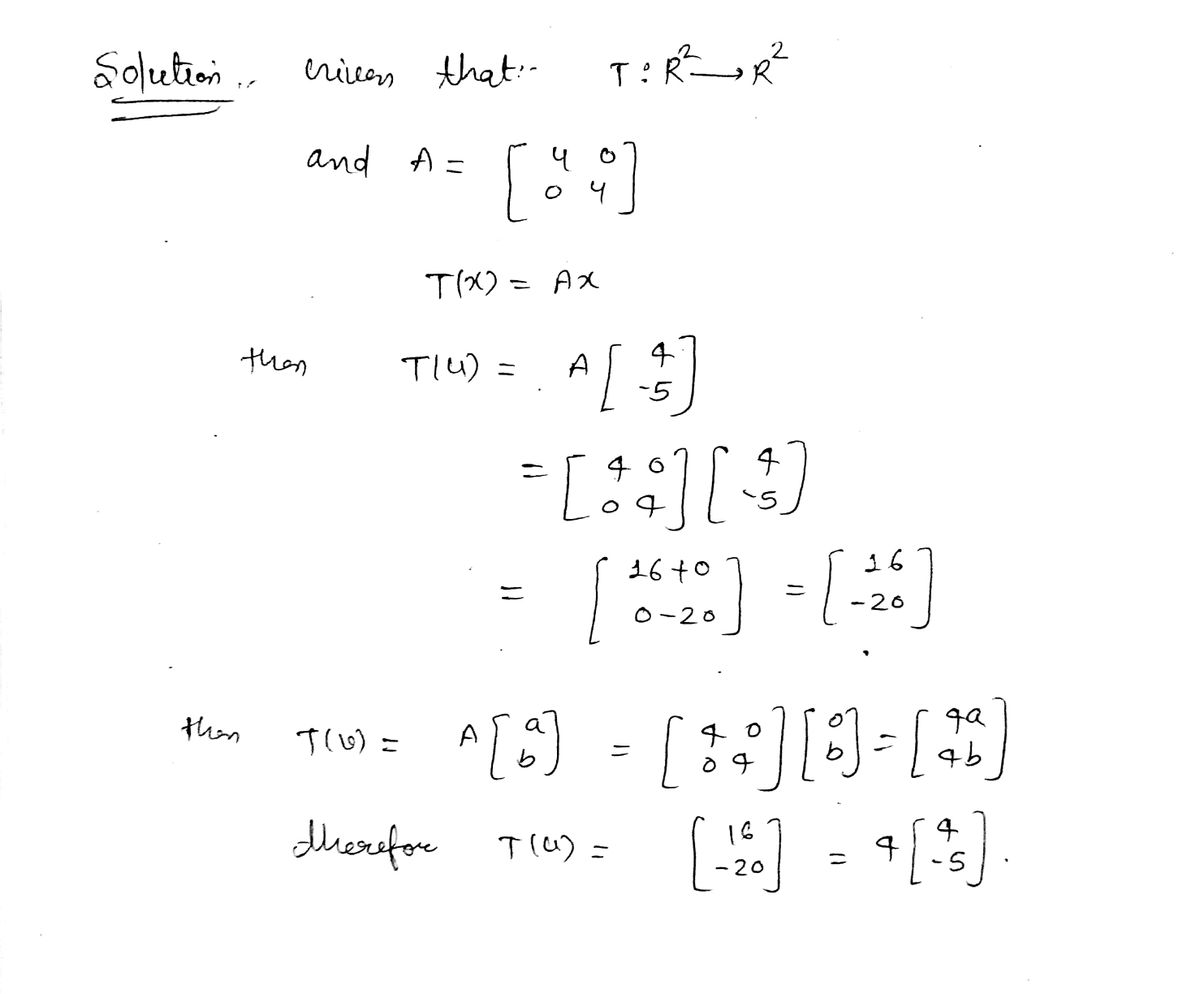 Solution :- Given that:- T : R² → R²
and A = [ 4 0 ; 0 4 ]
T(x) = Ax
then T(u) = A [ 4 ; -5 ]
= [ 4 0 ; 0 4 ] [ 4 ; -5 ]
= [ 16+0 ; 0-20 ] = [ 16 ; -20 ]
then T(v) = A [ a ; b ] = [ 4 0 ; 0 4 ] [ 0 ; b ] = [ 4a ; 4b ]
therefore T(u) = [ 16 ; -20 ] = 4 [ 4 ; -5 ] .